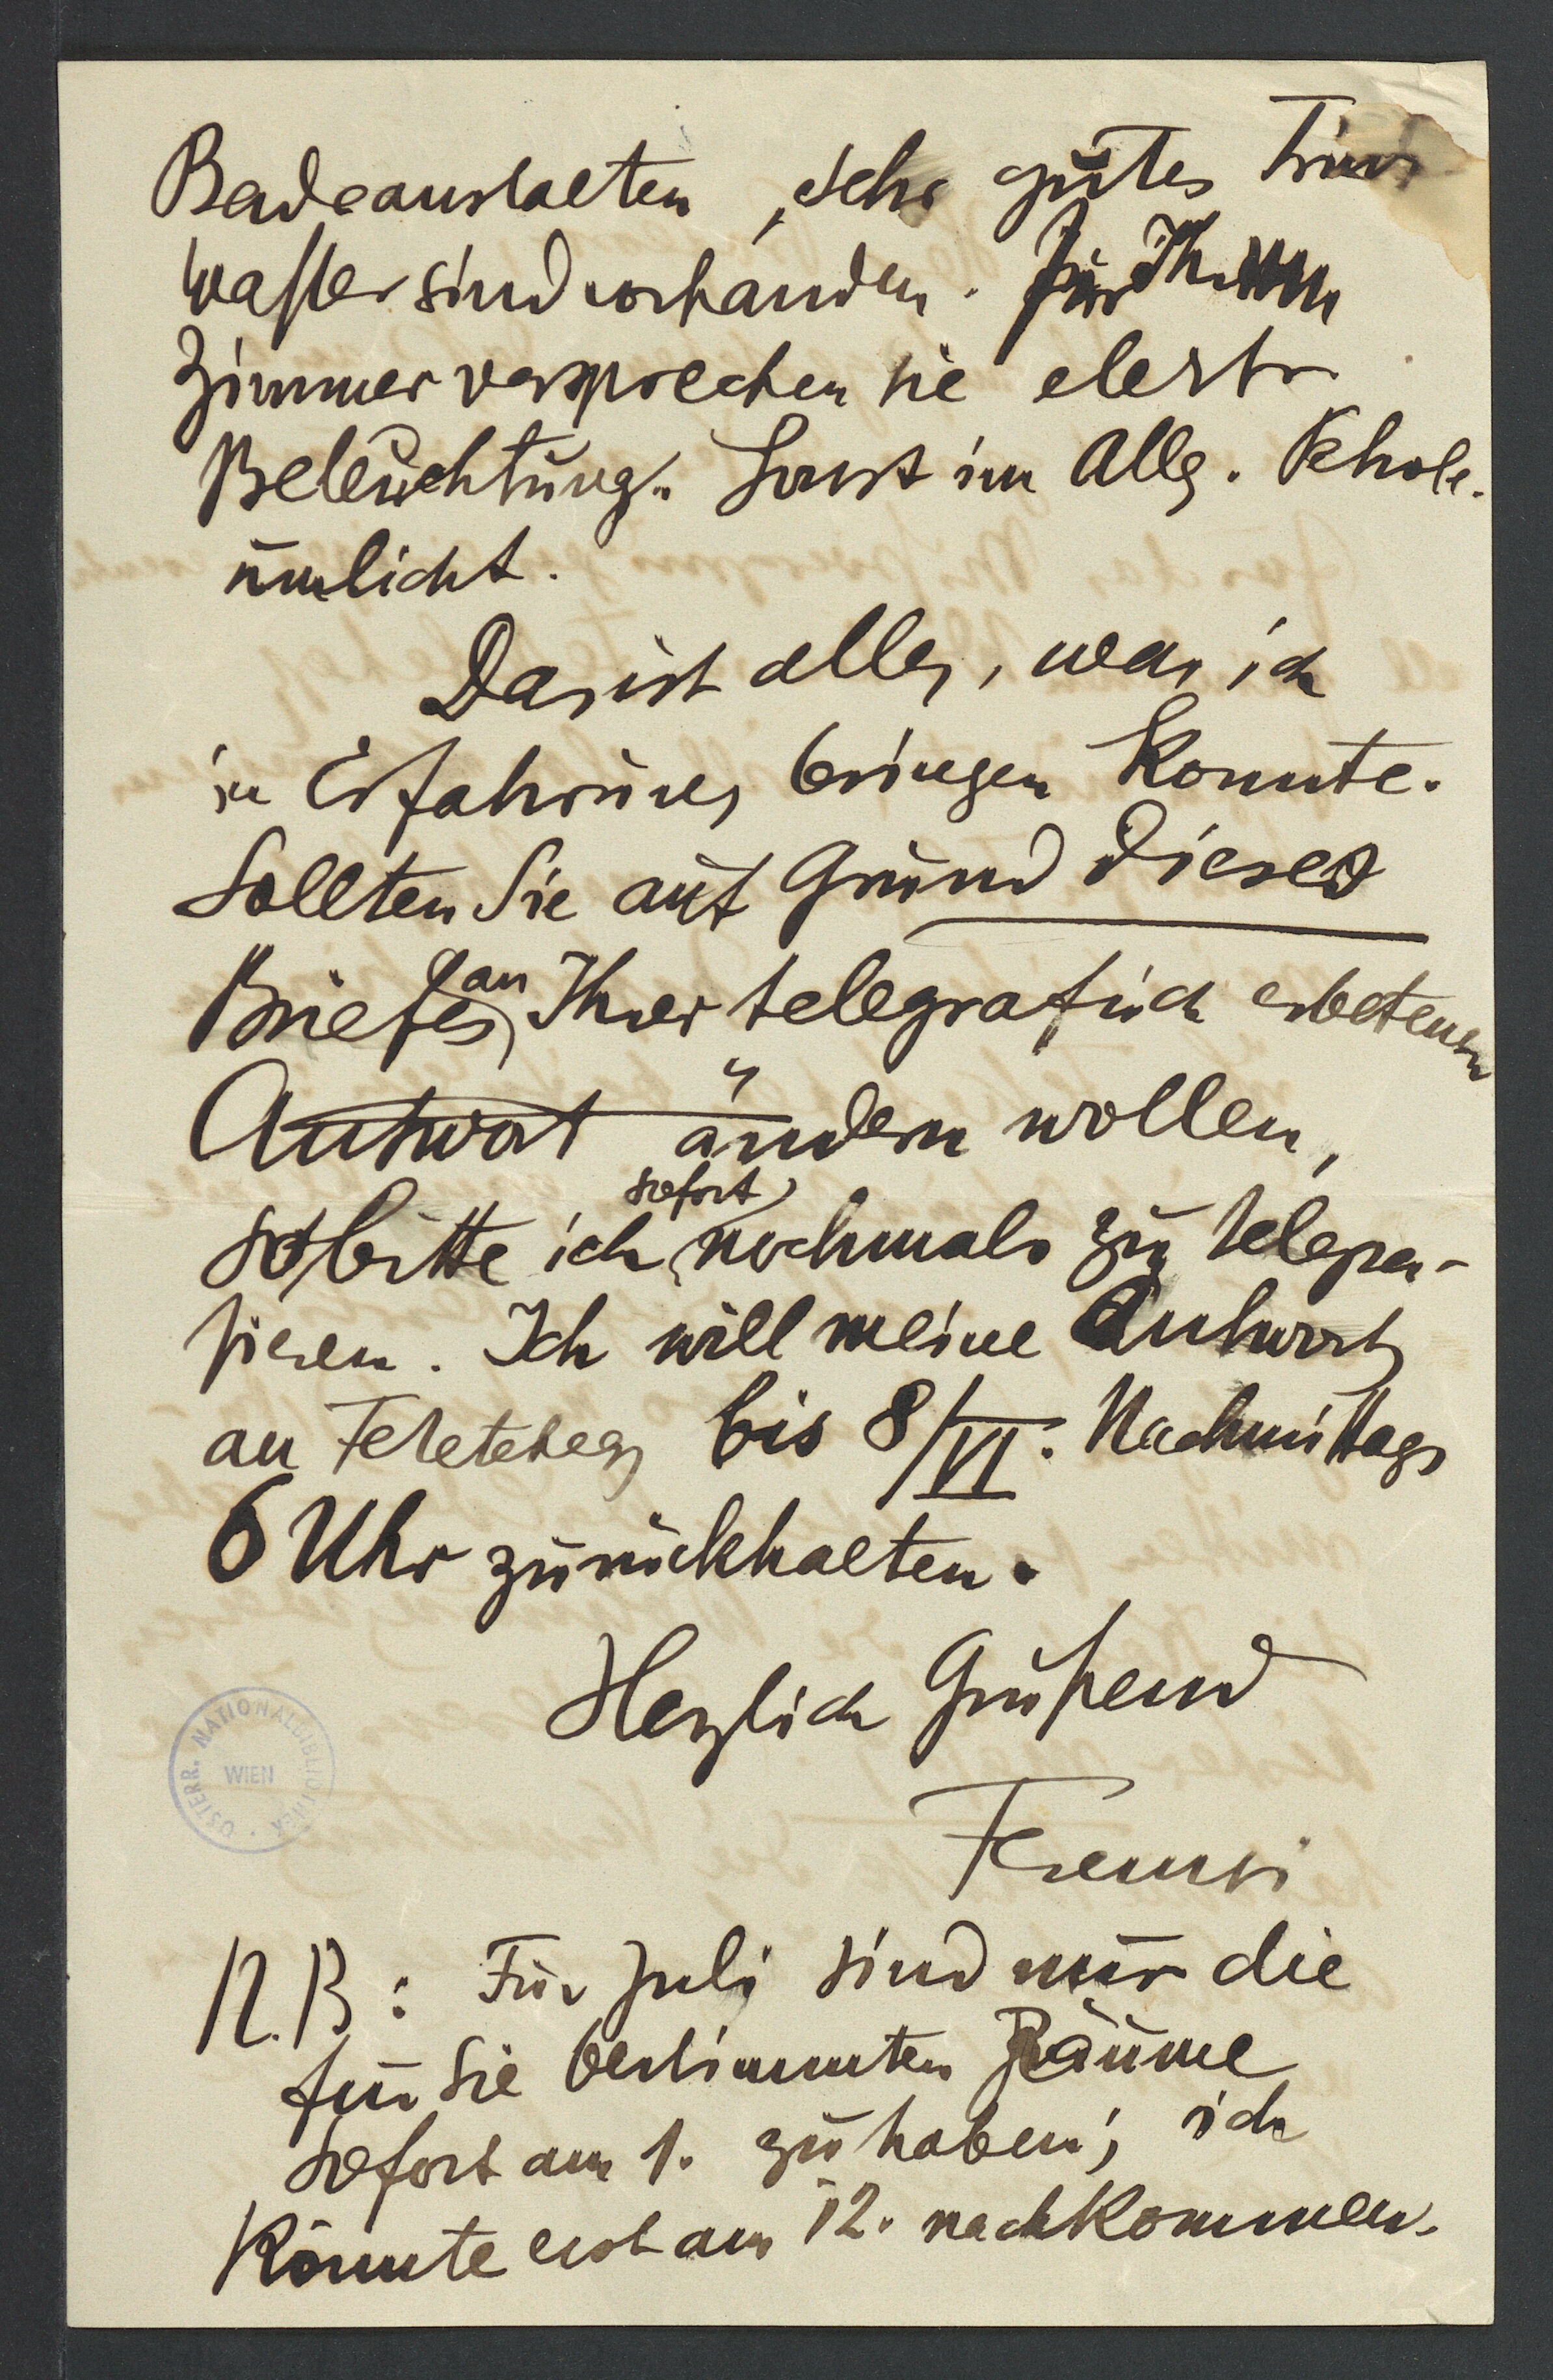 Badeanstalten, sehr gutes Trink
wasser sind vorhanden. Für Ihr
Zimmer versprechen sie elektr.
Beleuchtung. Sonst im Allg. Petrole-
umlicht.
Das ist alles, was ich
in Erfahrung bringen konnte.
Sollten Sie auf Grund dieses
Briefes an Ihrer telegrafisch erbetenen
Antwort ändern wollen,
so bitte ich sofort nochmals zu telegra-
fieren. Ich will meine Antwort
an Feketehegy bis 8/VI. Nachmittags
6 Uhr zurückhalten.
Herzlich Grüßend
Ferenczi
N.B: Für Juli sind nur die
für Sie bestimmten Räume
sofort am 1. zu haben; ich
könnte erst am 12. nachkommen.
ÖSTERR. NATIONALBIBLIOTHEK
WIEN